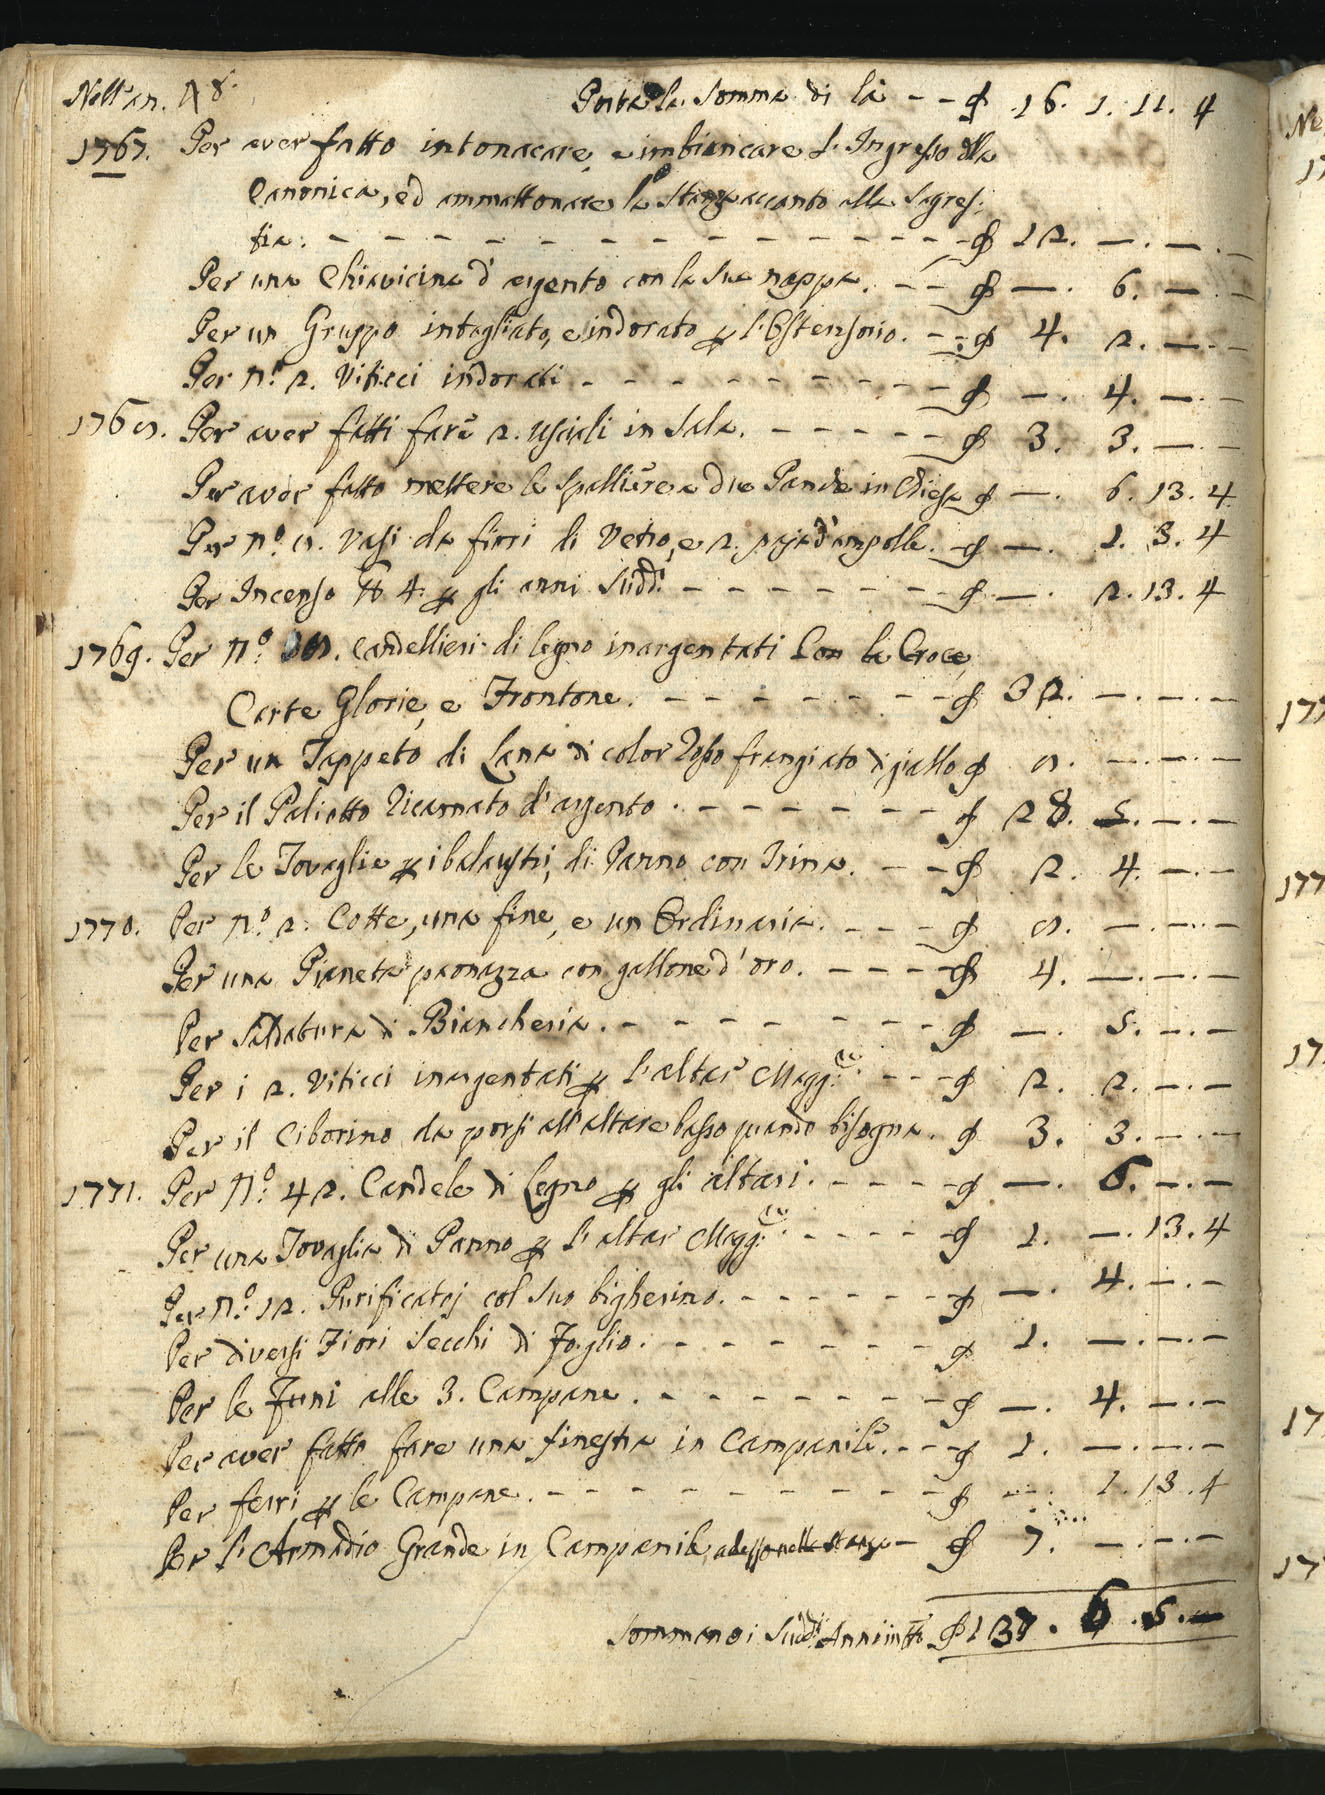 Nell'an. 
Porta la Somma di là - - ₰ 16. 1. 11. 4
1767. Per aver fatto intonacare, e imbiancare l'Ingresso della
Canonica, ed ammattonare la Stanza accanto alla Sagres:
tia. - - - - - - - - - - - - - - ₰ 12. —. —. —
Per una Chiavicina d'argento con la sua nappa. - - ₰ —. 6. —. —
Per un Gruppo intagliato, e indorato ꝑ l'Ostensorio. - - ₰ 4. 2. —. —
Per n.º 2. Viticci indorati - - - - - - - - - ₰ —. 4. —. —
Per aver fatti fare 2. Usciali in Sala. - - - - - ₰ 3. 3. —. —
Per aver fatto mettere le Spalliere a due Panche in Chiesa ₰ —. 6. 13. 4
Per n.º 6. Vasi da fiori di Vetro, e 2. paja d'ampolle. - ₰ —. 1. 3. 4
Per Incenso ℔ 4. ꝑ gli anni Sudd.i - - - - - - - ₰ —. 2. 13. 4
1769. Per n.º 6. Candellieri di legno inargentati Con la Croce,
Carte Glorie, e Frontone. - - - - - - - - ₰ 32. —. —. —
Per un Tappeto di Lana di color Rosso frangiato di giallo ₰ 6. —. —. —
Per il Paliotto Ricamato d'argento. - - - - - - - ₰ 28. 5. —. —
Per le Tovaglie ꝑ i balaustri, di Panno con Trina. - - ₰ 2. 4. —. —
1770. Per n.º 2. Cotte, una fine, e un Ordinaria. - - - - ₰ 6. —. —. —
Per una Pianeta paonazza con gallone d'oro. - - - - ₰ 4. —. —. —
Per Saldatura di Biancheria. - - - - - - - - ₰ —. 5. —. —
Per i 2. Viticci inargentati ꝑ l'altar Magg.re - - - ₰ 2. 2. —. —
Per il Ciborino da porsi all'altare basso quando bisogna. ₰ 3. 3. —. —
1771. Per N.º 42. Candele di Legno ꝑ gli altari. - - - - ₰ —. 6. —. —
Per una Tovaglia di Panno ꝑ l'altar Magg.re - - - - - ₰ 1. —. 13. 4
Per n.º 12. Purificatoj col suo bigherino. - - - - - - ₰ —. 4. —. —
Per diversi Fiori Secchi di Foglio. - - - - - - - ₰ 1. —. —. —
Per le Funi alle 3. Campane. - - - - - - - - ₰ —. 4. —. —
Per aver fatto fare una finestra in Campanile. - - - ₰ 1. —. —. —
Per ferri ꝑ le Campane. - - - - - - - - - - ₰ —. 1. 13. 4
Per l'Armadio Grande in Campanile, adesso nella stanza - ₰ 7. —. —. —
Sommano i Sudd.i Anni in tt.o ₰ 137. 6. 5. —